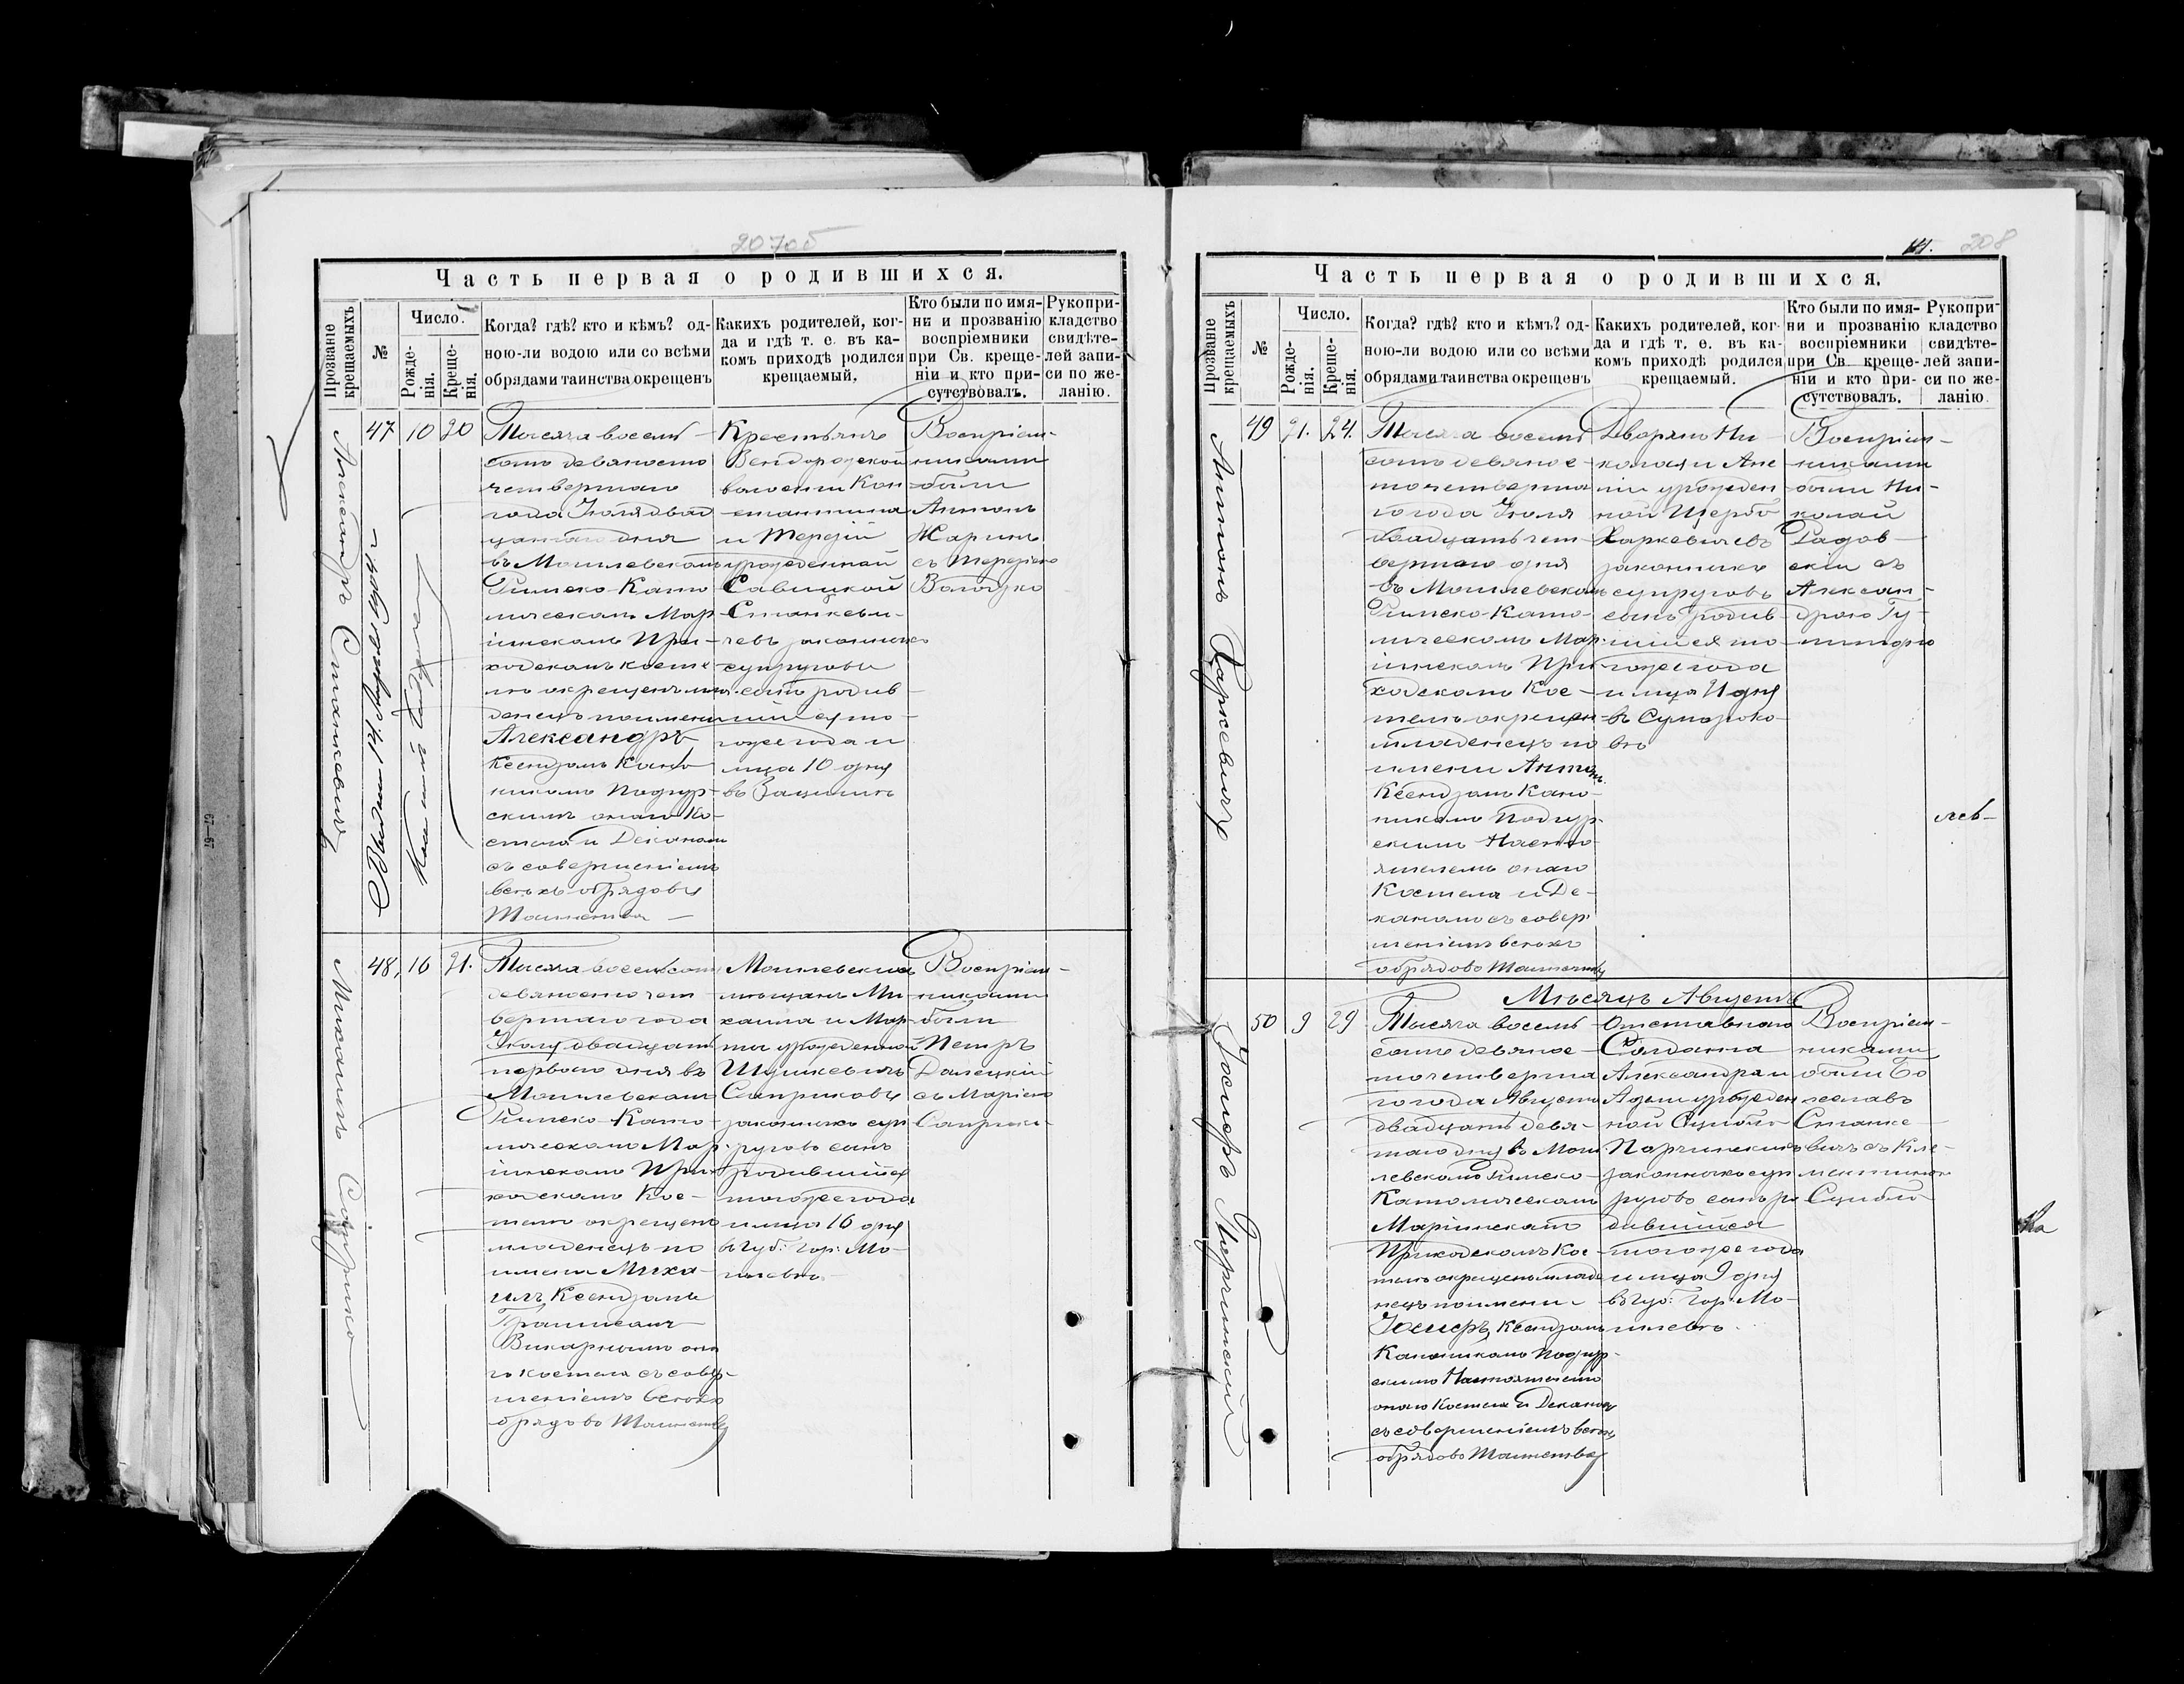 207об
Часть первая о родившихся.
Прозваніе крещаемыхъ
№
Число.
Рожде-
нія.
Креще-
нія.
Когда? гдѣ? кто и кѣмъ? од-
ною-ли водою или со всѣми
обрядами таинства окрещенъ
Какихъ родителей, ког-
да и гдѣ т. е. въ ка-
комъ приходѣ родился
крещаемый.
Кто были по имя-
ни и прозванію
воспріемники
при Св. креще-
ніи и кто при-
сутствовалъ.
Рукопри-
кладство
свидѣте-
лей запи-
си по же-
ланію.
Александръ Станкевичъ
47
10
20
Тысяча восемь-
сотъ девяносто
четвертаго
года Іюля двад
цатаго дня
въ Могилевскомъ
Римско-Като
лическомъ Мар
іинскомъ При-
ходскомъ косте
лѣ окрещенъ мла
денецъ по имени
Александръ
Ксендзомъ Кано
никомъ Подгур-
скимъ онаго Ко-
стела и Деканомъ
съ совершеніемъ
всѣхъ обрядовъ
Таинства
Крестьянъ
Вендорожской
волости Кон
стантина
и Терезіи
урожденной
Савицкой
Станкеви-
чевъ законныхъ
супруговъ
сынъ родив
шійся то-
гоже года и
мца 10 дня
въ
Воспріем-
никами
были
Антонъ
Жаринъ
съ Терезіею
Володзко
Михаилъ Саприко
48,
16
21.
Тысяча восемьсотъ
девяносто чет
вертаго года
Іюля двадцать
перваго дня въ
Могилевскомъ
Римско-Като-
лическомъ Мар
іинскомъ При
ходскомъ Кос-
телѣ окрещенъ
младенецъ по
имени Миха-
илъ Ксендзомъ
Викарнымъ она
го костела съ совер-
шеніемъ всѣхъ
обрядовъ Таинства
Могилевскихъ
мѣщанъ Ми-
хаила и Мар-
ты урожденной
Шушкевичъ
Саприковъ
законныхъ суп
руговъ сынъ
родившійся
тогоже года
и мца 16 дня
въ губ: гор: Мо-
гилевѣ
Воспріем-
никами
были
Петръ
Далецкій
съ Маріею
Саприко
208
Часть первая о родившихся.
Прозваніе крещаемыхъ
№
Число.
Рожде-
нія.
Креще-
нія.
Когда? гдѣ? кто и кѣмъ? од-
ною-ли водою или со всѣми
обрядами таинства окрещенъ
Какихъ родителей, ког-
да и гдѣ т. е. въ ка-
комъ приходѣ родился
крещаемый.
Кто были по имя-
ни и прозванію
воспріемники
при Св. креще-
ніи и кто при-
сутствовалъ.
Рукопри-
кладство
свидѣте-
лей запи-
си по же-
ланію.
Антонъ Харкевичъ
49
21.
24.
Тысяча восемь
сотъ девянос-
то четверта
го года Іюля
двадцать чет-
вертаго дня
въ Могилевскомъ
Римско-Като-
лическомъ Мар
іинскомъ При
ходскомъ Кос-
телѣ окрещен
младенецъ по
имени Антонъ
Ксендзомъ Кано-
никомъ Подгур-
скимъ Насто-
ятелемъ онаго
Костела и Де-
каномъ съ совер
шеніемъ всѣхъ
обрядовъ Таинства
Дворянъ Ни-
колая и Ане
ли урожден
ной Щербо
Харкевичевъ
законныхъ
супруговъ
сынъ родив
шійся то-
гоже года
и мца 21 дня
въ Сумороко-
вѣ
Воспріем-
никами
были Ни-
колай
Гадов-
скій съ
Алексан-
дрою
Мѣсяцъ Августъ
Іосифъ Парчинскій
50
9
29
Тысяча восемь
сотъ девянос-
то четверта
го года Августа
двадцать девя-
таго дня въ Моги
левскомъ Римско-
Католическомъ
Маріинскомъ
Приходскомъ Кос
телѣ окрещенъ младе
нецъ по имени
Іосифъ Ксендзомъ
Каноникомъ Подгур-
скимъ Настоятелемъ
онаго Костела и Деканомъ
съ совершеніемъ всѣхъ
обрядовъ Таинства
Отставного
Солдата
Александра и
урожден
ной
Парчинскихъ
законныхъ суп
руговъ сынъ ро
дившійся
тогоже года
и мца 9 дня
въ губ: гор: Мо-
гилевѣ
Воспріем-
никами
были Бо
леславъ
Станке
вичъ съ Кле-
ментиною